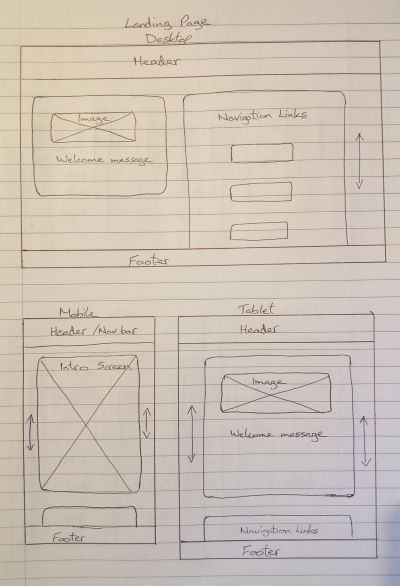 Landing Page
Desktop
Header
Image
Welcome message
Navigation Links
Footer
Mobile
Header / Nav bar
Intro Screen
Footer
Tablet
Header
Image
Welcome message
Navigation Links
Footer